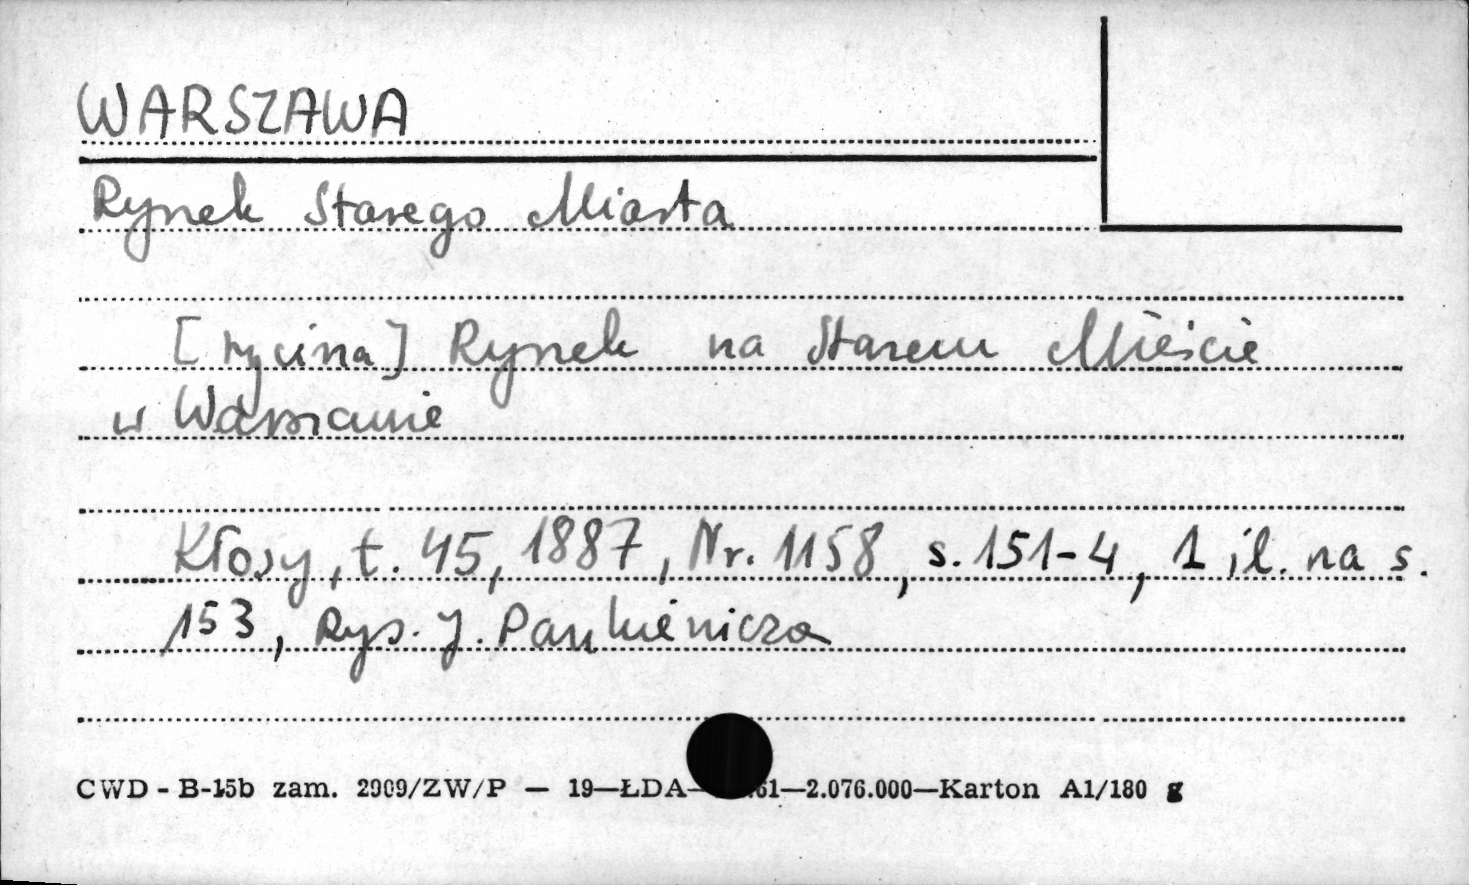 WARSZAWA
Rynek Starego Miasta
[rycina] Rynek na Starem Mieście
w Warszawie
Kłosy, t. 45, 1887, Nr. 1158, s. 151-4, 1 il. na s.
153, Rys. J. Pankiewicza
CWD - B-15b zam. 2909/ZW/P — 19—ŁDA— 61—2.076.000—Karton A1/180 g